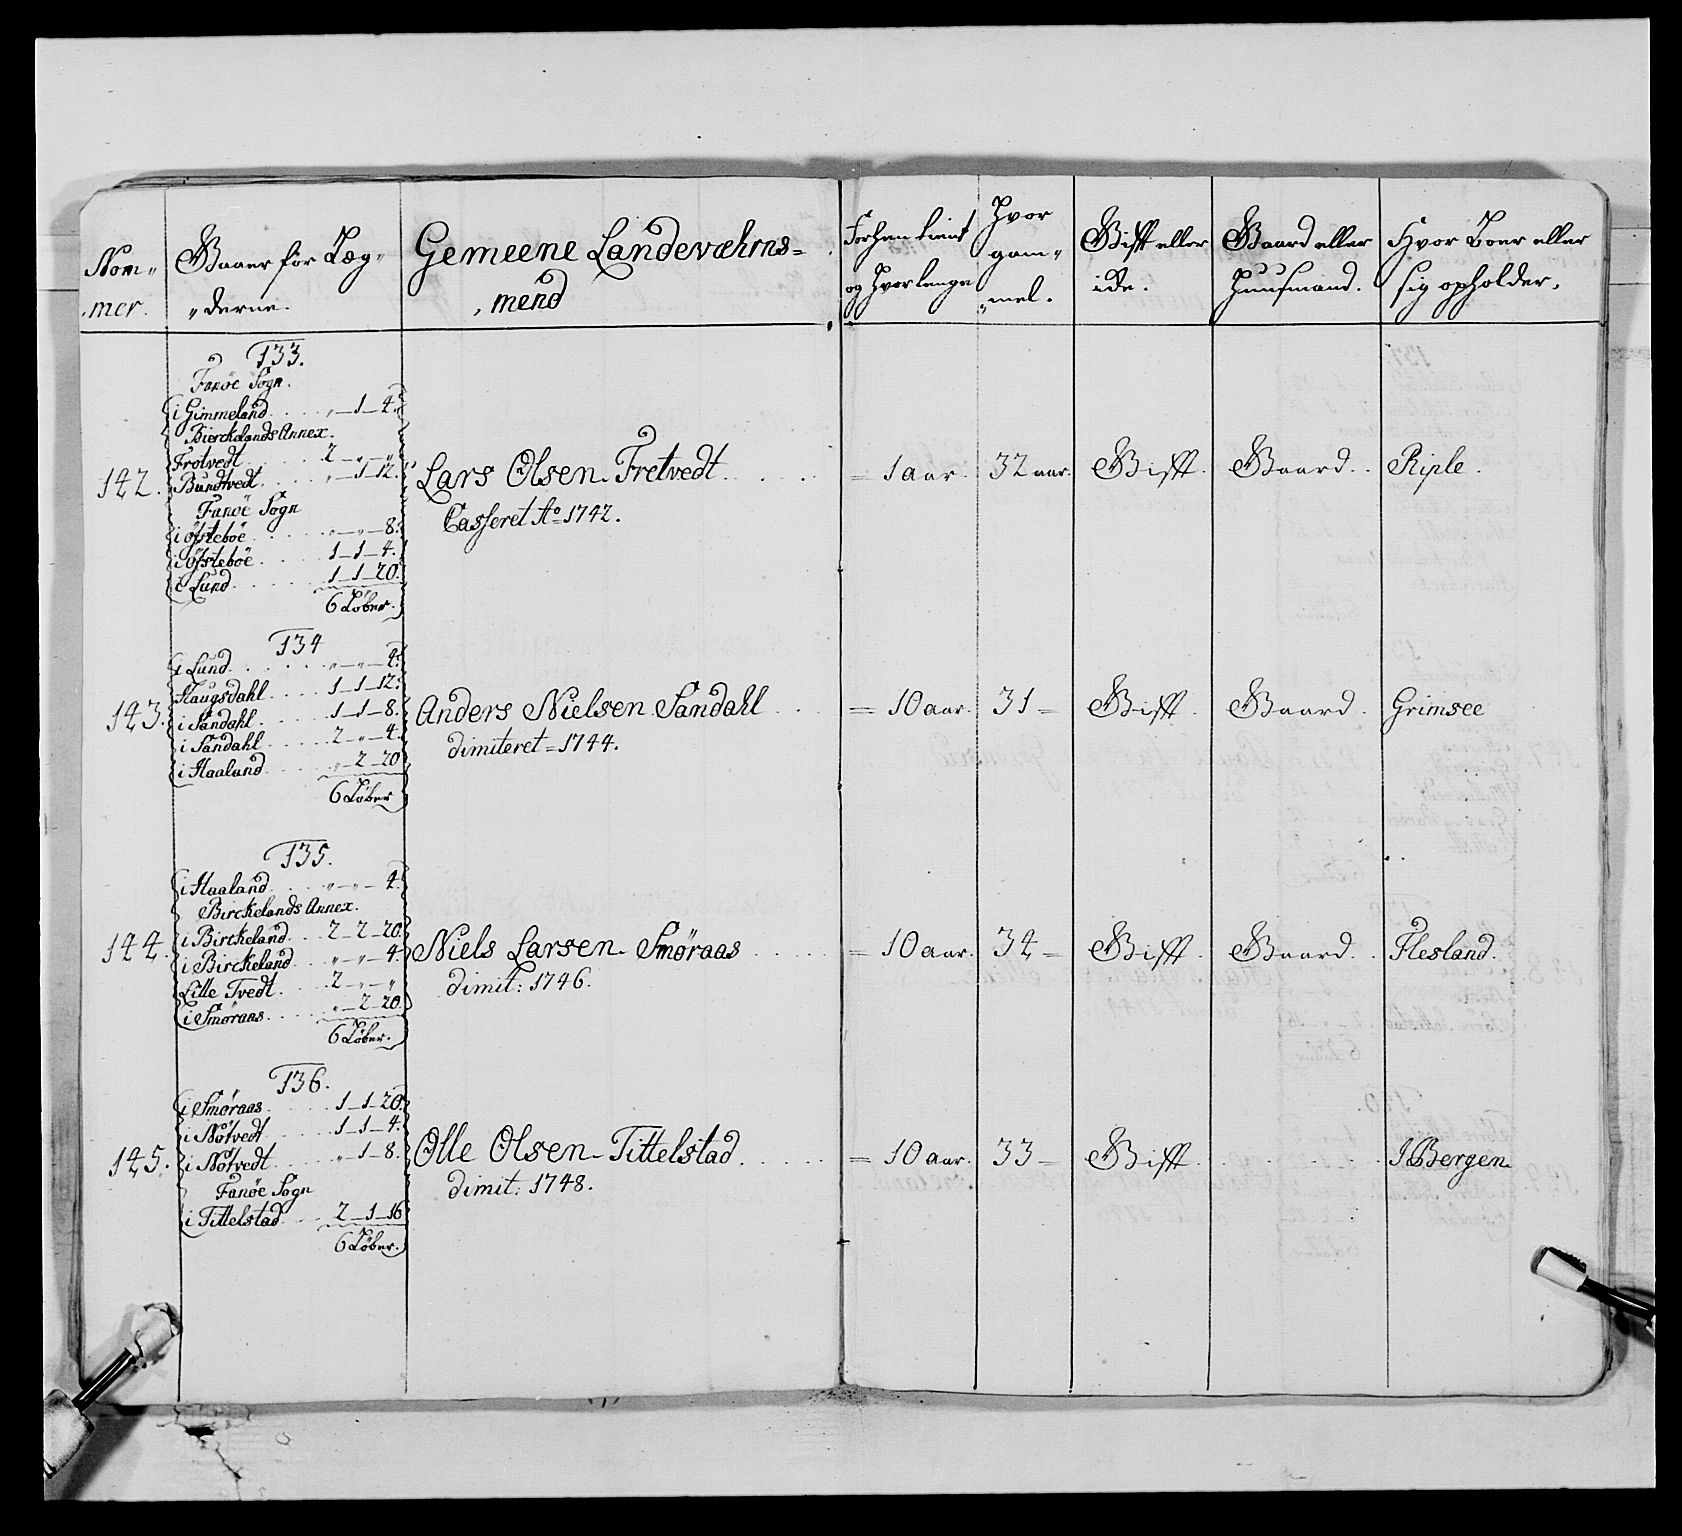 Nom„
„mer.
Gaaer for Læg„
„derne.
Gemeene Landeværns=
„mend
Forhen tient
og hvorlenge
Hvor
gam„
„mel.
Gift eller
ide.
Gaard eller
Huusmand.
Hvor Boer eller
sig opholder.
133.
Fanöe Sogn.
i Gimmeland . . . . „ — 1 — 4.
Bierckelands Annex.
Frotvedt . . . . 2 — „ — „
Bundtvedt . . . . „ — 1 — 12.
Fanöe Sogn
i Öfsteböe . . . . „ — „ — 8.
i Öfsteböe . . . . 1 — 1 — 4.
i Lund . . . . 1 — 1 — 20.
6 Löber.
142. Lars Olsen Fretvedt . . . . = 1 aar. 32 aar. Gift. Gaard. Riple.
Casseret Ao 1742.
134
i Lund . . . . „ — „ — 4.
Haugsdahl . . . . 1 — 1 — 12.
i Sandahl . . . . 1 — 1 — 8.
i Sandahl . . . . 2 — „ — 4.
i Haaland . . . . „ — 2 — 20
6 Löber
143. Anders Nielsen Sandahl . . . = 10 aar. 31 = Gift. Gaard. Grimsee
dimiteret = 1744.
135.
i Haaland . . . . „ — „ — 4.
Birckelands Annex.
i Birckeland . . 2 — 2 — 20.
i Birckeland . . „ — „ — 4.
Lille Tvedt . . . . 2 — „ — „
i Smöraas . . . . „ — 2 — 20.
6 Löber.
144. Niels Larsen Smöraas . . . . = 10 aar. 34 = Gift. Gaard. Flesland.
dimit: 1746.
136.
i Smöraas . . . . 1 — 1 — 20.
i Nötvedt . . . . 1 — 1 — 4.
i Nötvedt . . . . „ — 1 — 8.
Fanöe Sogn
i Tittelstad . . . 2 — 1 — 16
6 Löber.
145. Olle Olsen Tittelstad . . . . = 10 aar. 33 = Gift. . . . . I Bergen.
dimit: 1748.